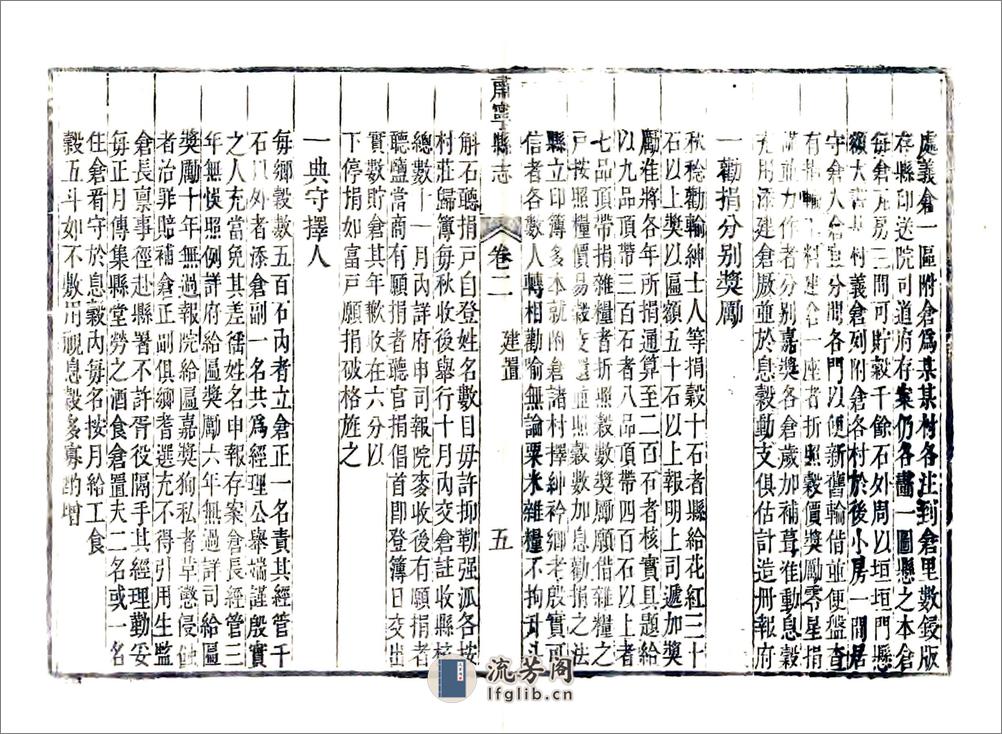 處義倉一區附倉爲某某村各注到倉里數鋟版
存縣印送院司道府存案仍各畵一圖懸之本倉
每倉瓦房三間可貯穀千餘石外周以垣垣門懸
額大書某村義倉列附倉各村於後小房一間居
守倉人倉宜分間各門以便新舊輸偕並便盤查
有捐輸工料建倉一座者折照穀價獎勵零星捐
並力作者分别嘉獎各倉歲加補葺准動息穀
充用添建倉厫並於息穀動支俱估計造册報府
一勸捐分别獎勵
秋稔勸輸紳士人等捐穀十石者縣給花紅三十
石以上奬以區額五十石以上報明上司遞加奬
勵准將各年所捐通算至二百石者核實具題給
以九品頂帶三百石者八品頂帶四百石以上者
七品頂帶捐雜糧者折照穀數獎勵願借雜糧之
戸按照糧價易穀支還並照穀數加息勸捐之法
縣立印簿多本就附倉諸村擇紳衿鄉老殷實
信者各數人轉相勸喻無論粟米雜糧不拘升斗
肅寧縣志
卷二
建置
五
斛石聽捐戸自登姓名數目毋許抑勒强派各按
村莊歸簿每秋收後舉行十月內交倉註收縣核
總數十一月內詳府申司報院麥收後有願捐者
聽鹽當商有願捐者聽官捐倡首卽登簿日交出
實數貯倉其年歉收在六分以
下停捐如富戸願捐破格旌之
一典守擇人
每鄉穀數五百石內者立倉正一名責其經管千
石以外者添倉副一名共爲經理公舉端謹殷實
之人充當免其差徭姓名申報存案倉長經管三
年無悞照例詳府給匾奬勵六年無過詳司給匾
獎勵十年無過報院給匾嘉奬狥私者革懲侵蝕
者治罪賠補倉正副俱鄉耆選充不得引用生監
倉長禀事徑赴縣署不許胥役隔手其經理勤妥
每正月傳集縣堂勞之酒食倉置夫二名或一名
住倉看守於息穀內每名按月給工食
穀五斗如不敷用視息穀多寡酌增
流芳阁
lfglib.cn